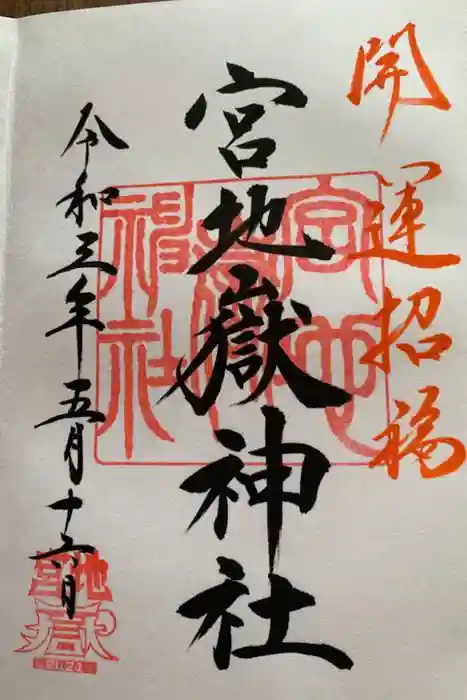 開運招福
宮地嶽神社
令和三年五月十六日
宮地嶽神社
宮地
嶽
2021